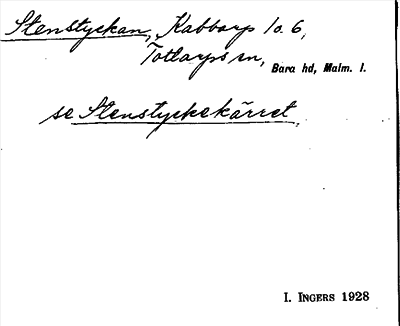 Stenstyckan, Kabbarp 1o.6,
Tottarps sn, Bara hd, Malm. l.
se Stenstyckekärret.
I. INGERS 1928